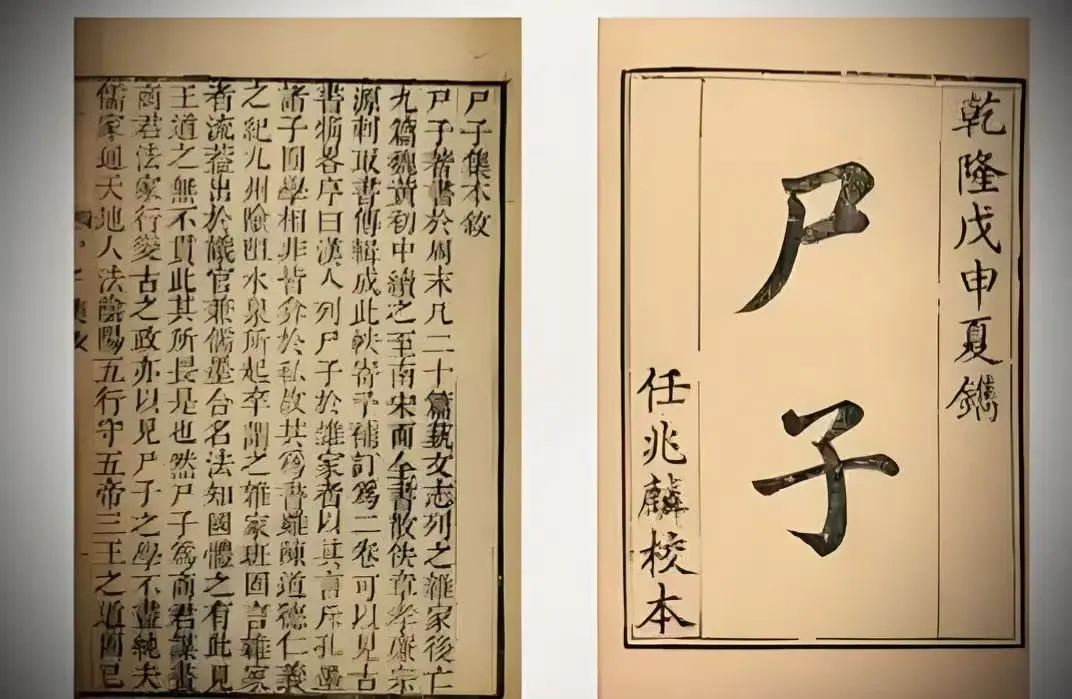 乾隆戊申夏鐫
尸子
任兆麟校本
尸子集本敘
尸子著書於周末凡二十篇藝文志列之雜家後亡
九篇魏黃初中續之至南宋而全書散佚章孝廉宗
源刺取書傳輯成此帙寄予補訂爲二卷可以見古
書序曰漢人列尸子於雜家者以其言斥孔墨
諸子學相非皆弇於私故其爲書雖陳道德仁義
之紀九州險阻水泉所起卒謂之雜家班固言雜家
者流蓋出於議官兼儒墨合名法知國體之有此見
王道之無不貫此其所是也然尸子爲商君謀畫
商君法家行變古之政亦以見尸子之學不盡純夫
儒家通天地人法陰陽五行守五帝三王之道而已